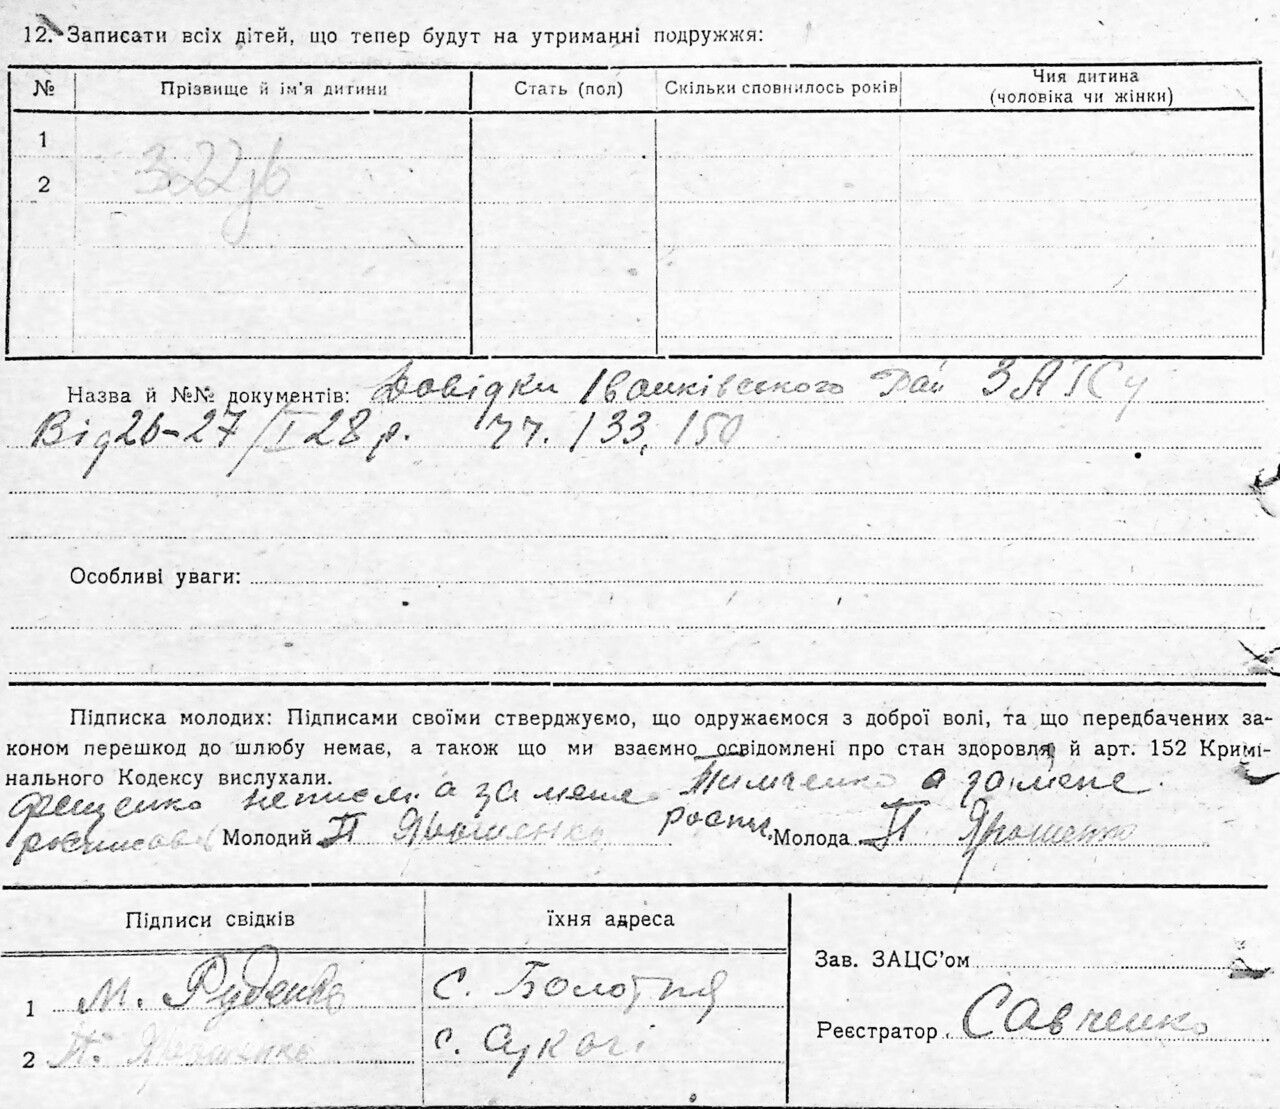 12. Записати всіх дітей, що тепер будут на утриманні подружжя:
№ Прізвище й ім'я дитини Стать (пол) Скільки сповнилось років Чия дитина (чоловіка чи жінки)
1
2
Назва й №№ документів: Довідки Іванківського Рай ЗАГСу
Від 26-27/I 28 р. чч. 133, 150
Особливі уваги:
Підписка молодих: Підписами своїми стверджуємо, що одружаємося з доброї волі, та що передбачених за-
коном перешкод до шлюбу немає, а також що ми взаємно освідомлені про стан здоровля й арт. 152 Кримі-
нального Кодексу вислухали.
Фещенко неписм. а за мене Тимченко а за мене
росписався Молодий П Ярошенко роспис. Молода П Ярошенко
Підписи свідків їхня адреса
Зав. ЗАЦС'ом
1 М. Руденко с. Болотня
Реєстратор Савченко
2 П. Ярошенко с.